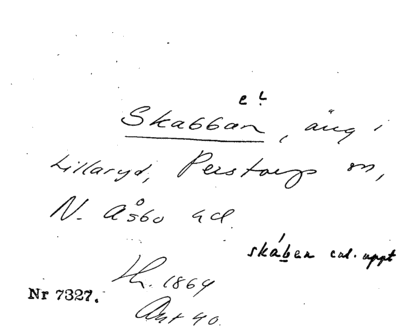 e l
Skabban, äng i
Lillaryd, Perstorps sn,
N. Åsbo hd.
skáben enl. uppt
Lh. 1864
Nr 7327.
Akt 40.